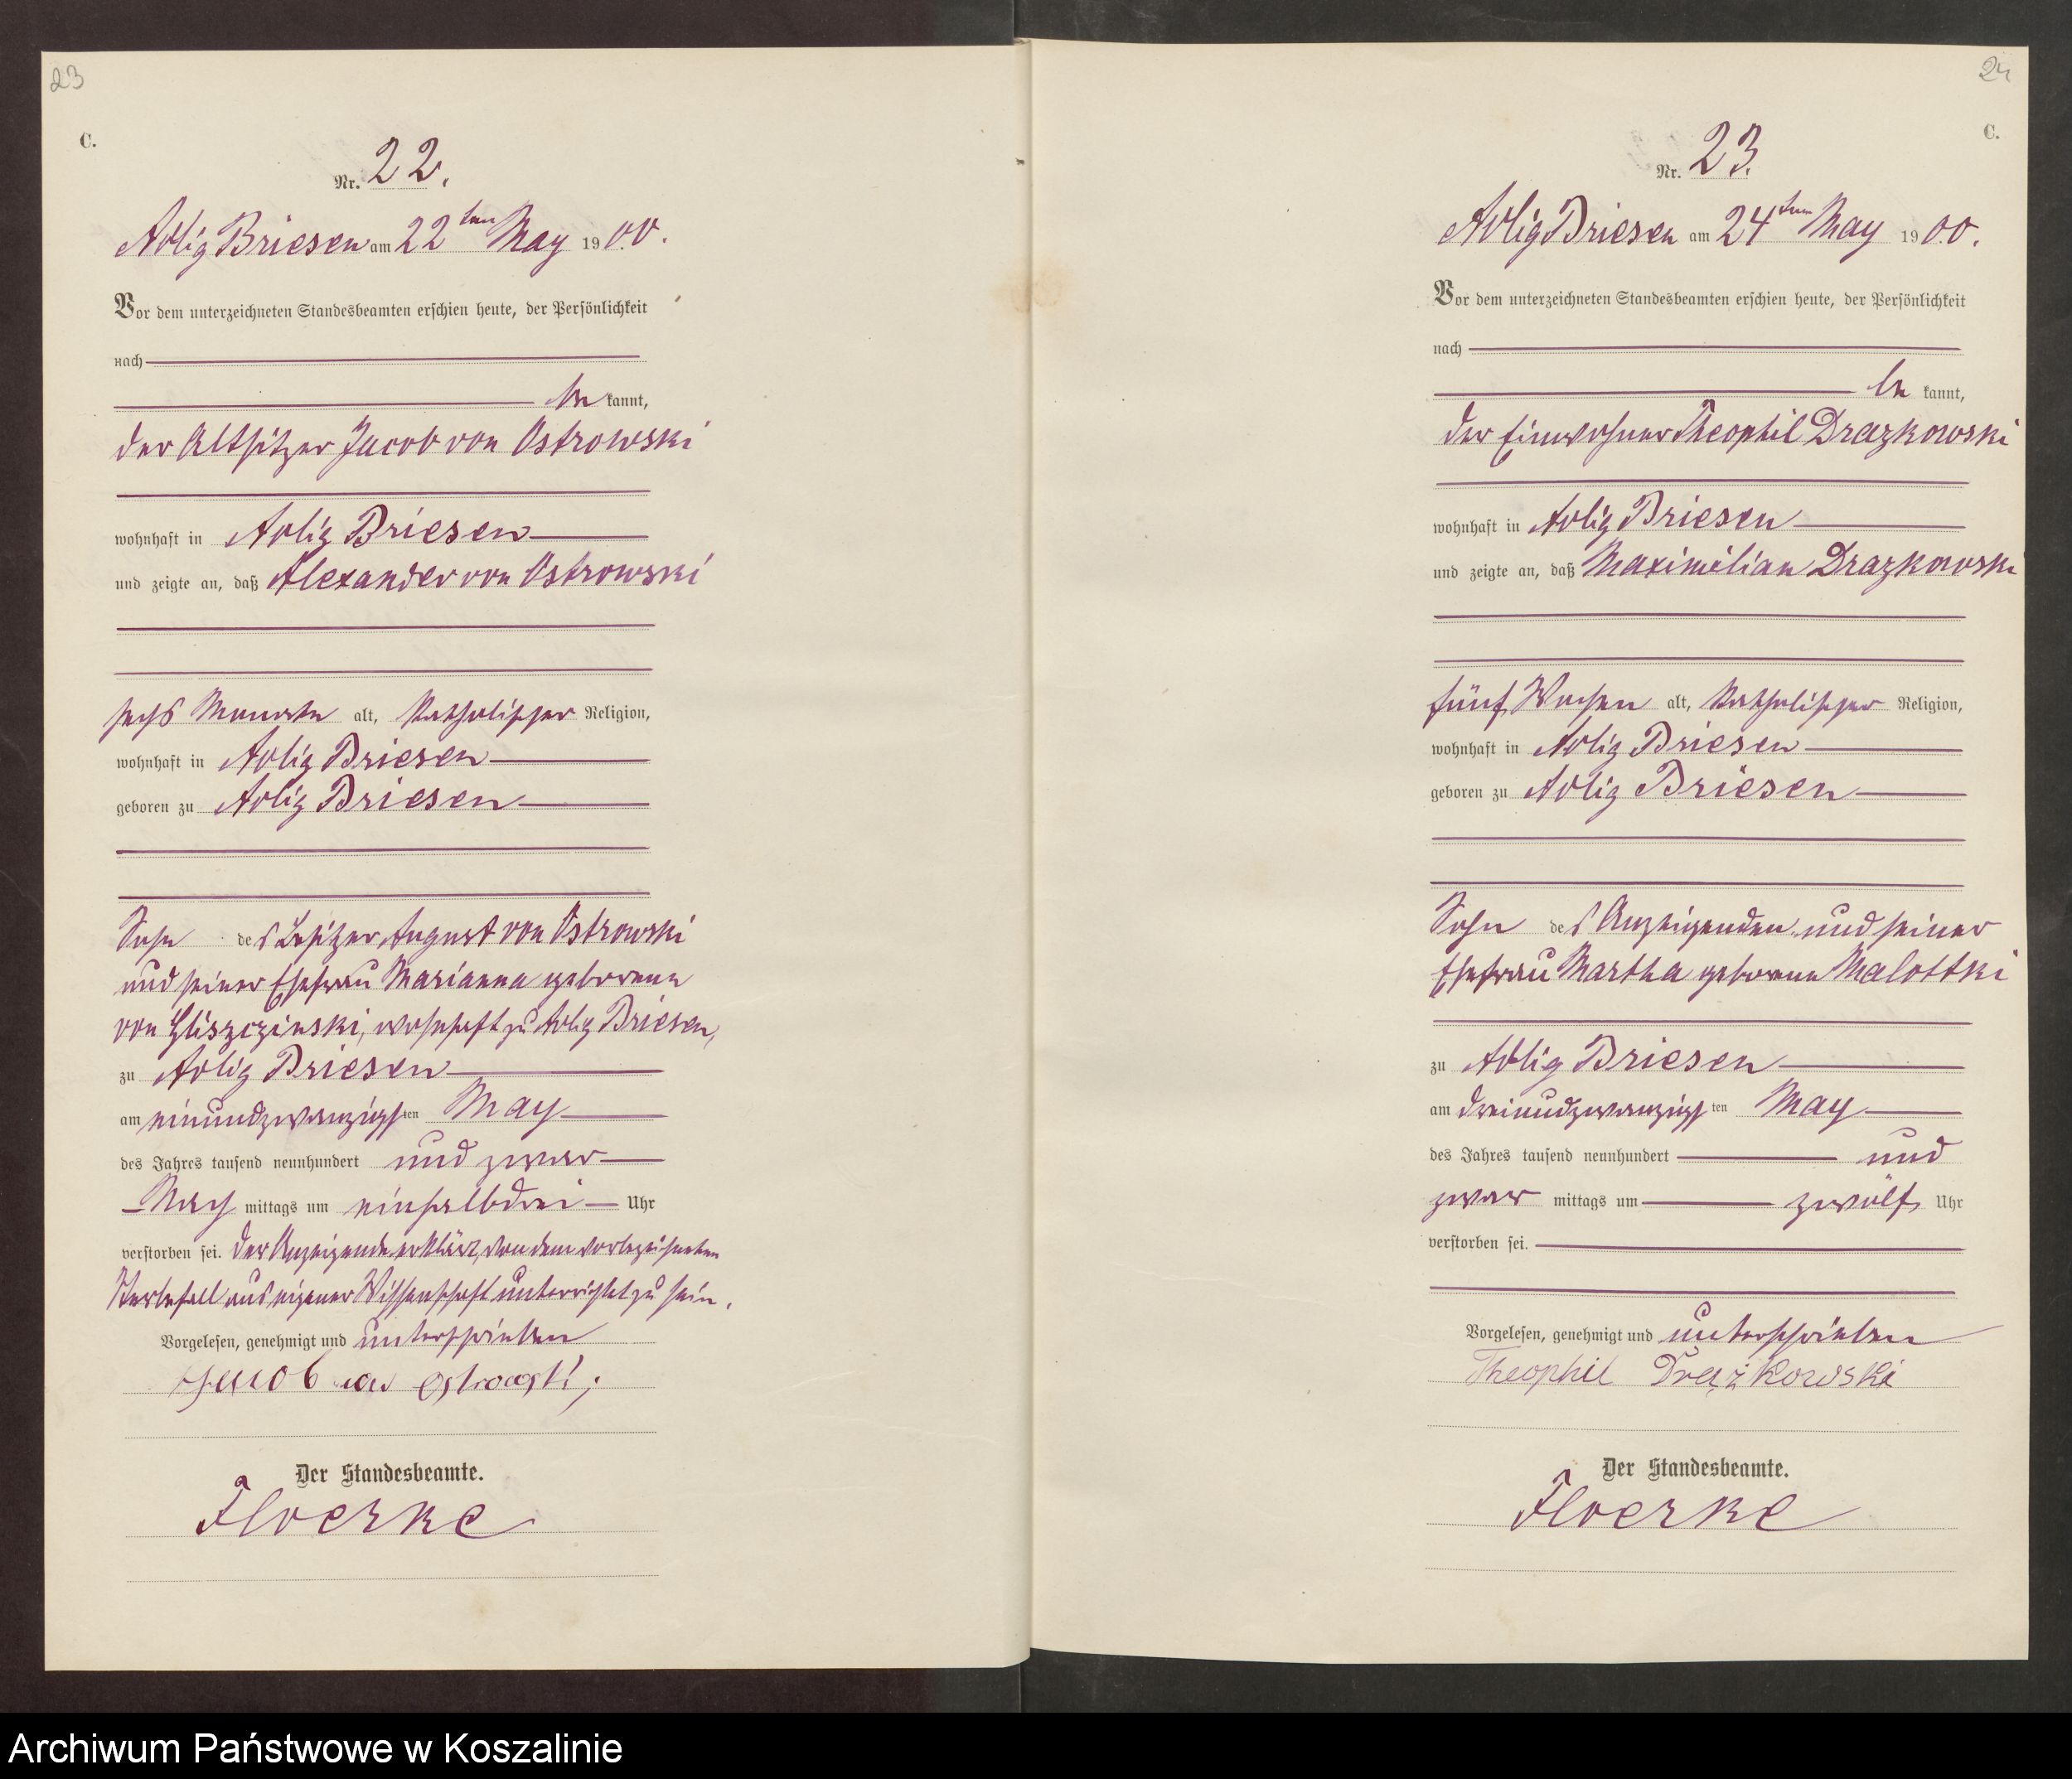 23
C.
Nr. 22.
Adlig Briesen am 22ten May 1900.
Vor dem unterzeichneten Standesbeamten erschien heute, der Persönlichkeit
nach
be kannt,
der Altsitzer Jacob von Ostrowski
wohnhaft in Adlig Briesen
und zeigte an, daß Alexander von Ostrowski
sechs Monate alt, katholischer Religion,
wohnhaft in Adlig Briesen
geboren zu Adlig Briesen
Sohn des Besitzer August von Ostrowski
und seiner Ehefrau Marianna geborene
von Gliszczinski, wohnhaft zu Adlig Briesen,
zu Adlig Briesen
am einundzwanzigsten May
des Jahres tausend neunhundert und zwar
Nach mittags um einhalbdrei Uhr
verstorben sei. Der Anzeigende erklärt, von dem vorbezeichneten
Sterbefall aus eigener Wissenschaft unterrichtet zu sein.
Vorgelesen, genehmigt und unterschrieben
Jacob von Ostrowski
Der Standesbeamte.
Floerke
24
C.
Nr. 23.
Adlig Briesen am 24ten May 1900.
Vor dem unterzeichneten Standesbeamten erschien heute, der Persönlichkeit
nach
be kannt,
der Einwohner Theophil Drazkowski
wohnhaft in Adlig Briesen
und zeigte an, daß Maximilian Drazkowski
fünf Wochen alt, katholischer Religion,
wohnhaft in Adlig Briesen
geboren zu Adlig Briesen
Sohn des Anzeigenden und seiner
Ehefrau Martha geborene Malottki
zu Adlig Briesen
am dreiundzwanzigsten May
des Jahres tausend neunhundert und
zwar mittags um zwölf Uhr
verstorben sei.
Vorgelesen, genehmigt und unterschrieben
Theophil Drążkowski
Der Standesbeamte.
Floerke
Archiwum Państwowe w Koszalinie